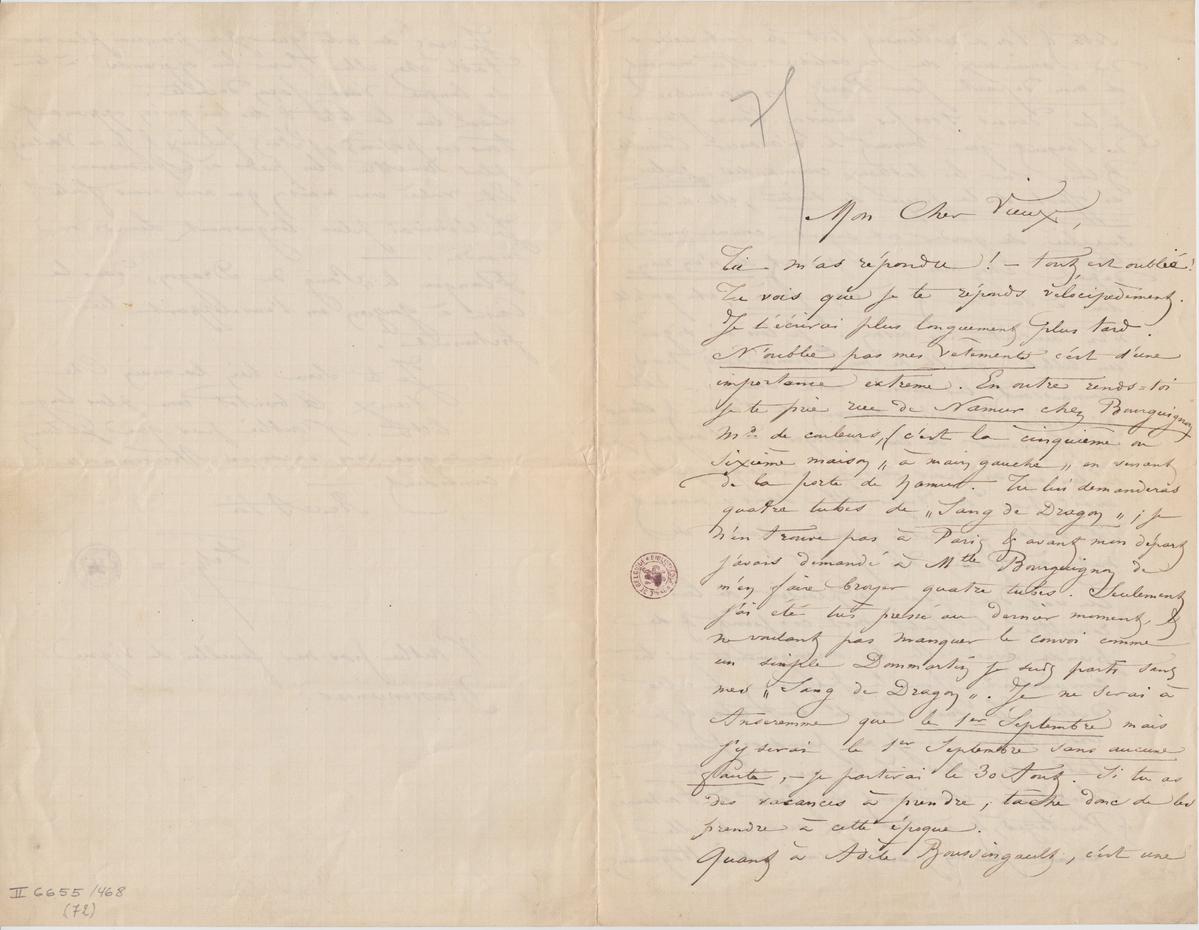 75
Mon Cher Vieux,
Tu m'as répondu ! — tout est oublié !
Tu vois que je te réponds vélocipédement.
Je t'écrirai plus longuement plus tard.
N'oublie pas mes vêtements c'est d'une
importance extrême. En outre rends-toi
je te prie rue de Namur chez Bourguignon
Md de couleurs, (c'est la cinquième ou
sixième maison „ à main gauche „ en venant
de la porte de Namur. Tu lui demanderas
quatre tubes de „Sang de Dragon „ ; je
n'en trouve pas à Paris & avant mon départ
j'avais demandé à Mlle Bourguignon de
m'en faire broyer quatre tubes. Seulement
j'ai été très pressé au dernier moment &
ne voulant pas manquer le convoi comme
un simple Dommartin je suis parti sans
mes „Sang de Dragon „. Je ne serai à
Anseremme que le 1er Septembre mais
j'y serai le 1er Septembre sans aucune
faute, — je partirai le 30 Aout. Si tu as
des vacances à prendre, tache donc de les
prendre à cette époque.
Quant à Adèle Boussingault, c'est une
II 6655/468
(72)